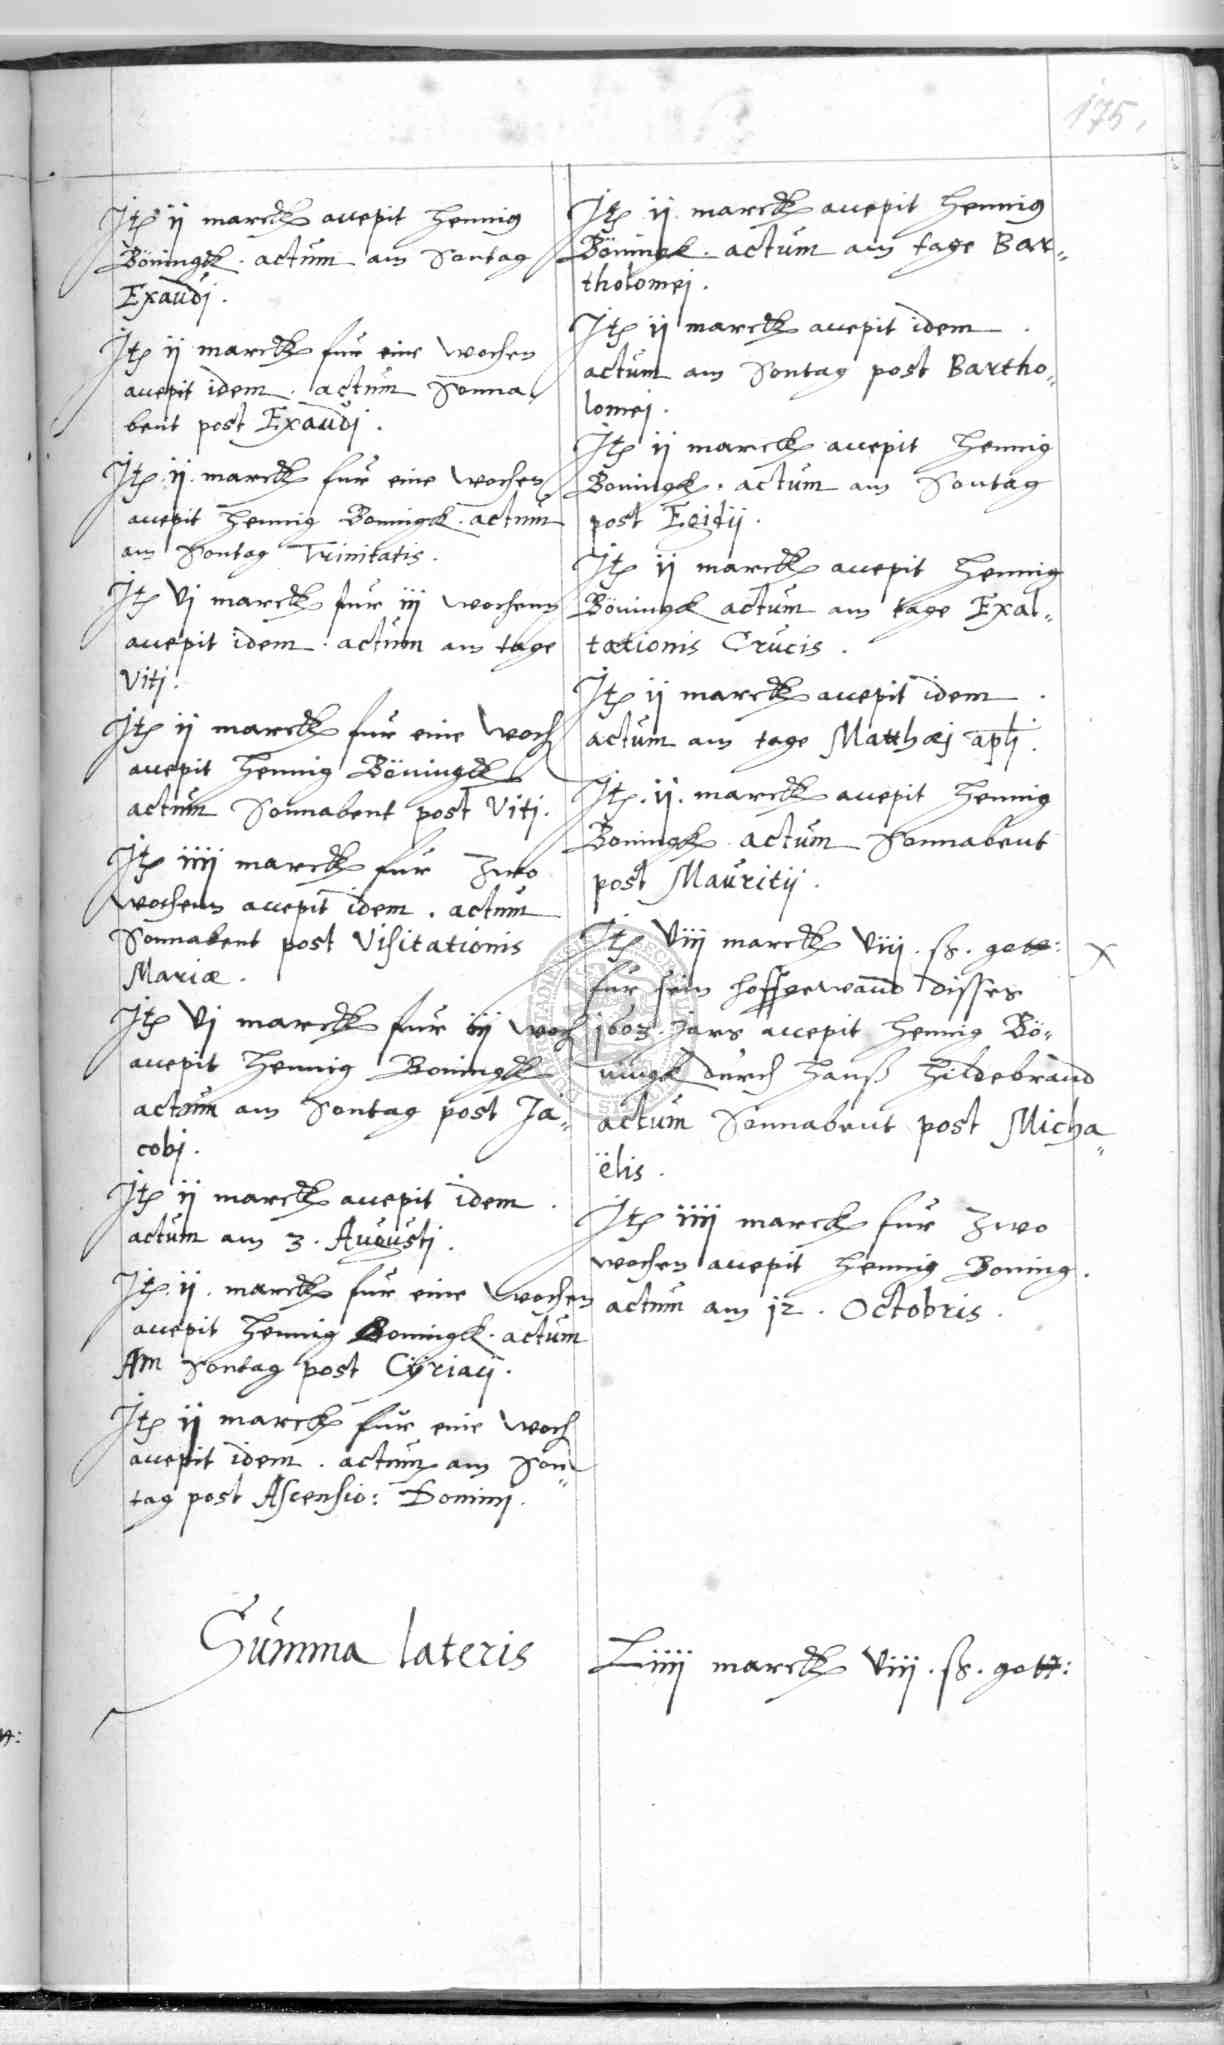 175.
Itz ij marckz accepit Hennig
Böningck. actum am Sontag
Exaudj.
Itz ij marckz fur eine wochen
accepit idem. actum Sonna
bent post Exaudj.
Itz. ij. marckz fur eine wochen
accepit Hennig Boningck. actum
am Sontag Trinitatis.
Itz vj marckz fur iij wochenn
accepit idem. actum am tage
Vitj.
Itz ij marckz fur eine woch
accepit Hennig Böningck
actum Sonnabent post Vitj.
Itz iiij marckz fur zwo
wochenn accepit idem. actum
Sonnabent post Visitationis
Mariæ.
Itz vj marckz fur iij woch
accepit Hennig Boningck
actum am Sontag post Ja„
cobj.
Itz ij marckz accepit idem.
actum am 3. Augustj.
Itz. ij. marckz fur eine wochen
accepit Hennig Boningck. actum
Am Sontag post Cÿriacj.
Itz ij marckz fur eine woch
accepit idem. actum am Son„
tag post Ascensio: Dominj.
Itz ij. marckz accepit Hennig
Böningk. actum am tage Bar„
tholomej.
Itz ij marckz accepit idem.
actum am Sontag post Bartho„
lomej.
Itz ij marck accepit Hennig
Boningck. actum am Sontag
post Egidij.
Itz ij marckz accepit Hennig
Böningck actum am tage Exal„
tationis Crucis.
Itz ij marckz accepit idem.
actum am tage Matthæj aplj.
Itz. ij. marckz accepit Hennig
Boningck actum Sonnabent
post Mauritij.
Itz viij marckz viij. ß. gott: x
fur sein hoffgewand disses
1603. Jars accepit Hennig Bö„
ningk durch Hanß Hildebrand
actum Sonnabent post Micha„
ëlis.
Itz iiij marck fur zwo
wochen accepit Hennig Boning.
actum am 12. Octobris.
Summa lateris Liiij marckz viij. ß. gott: